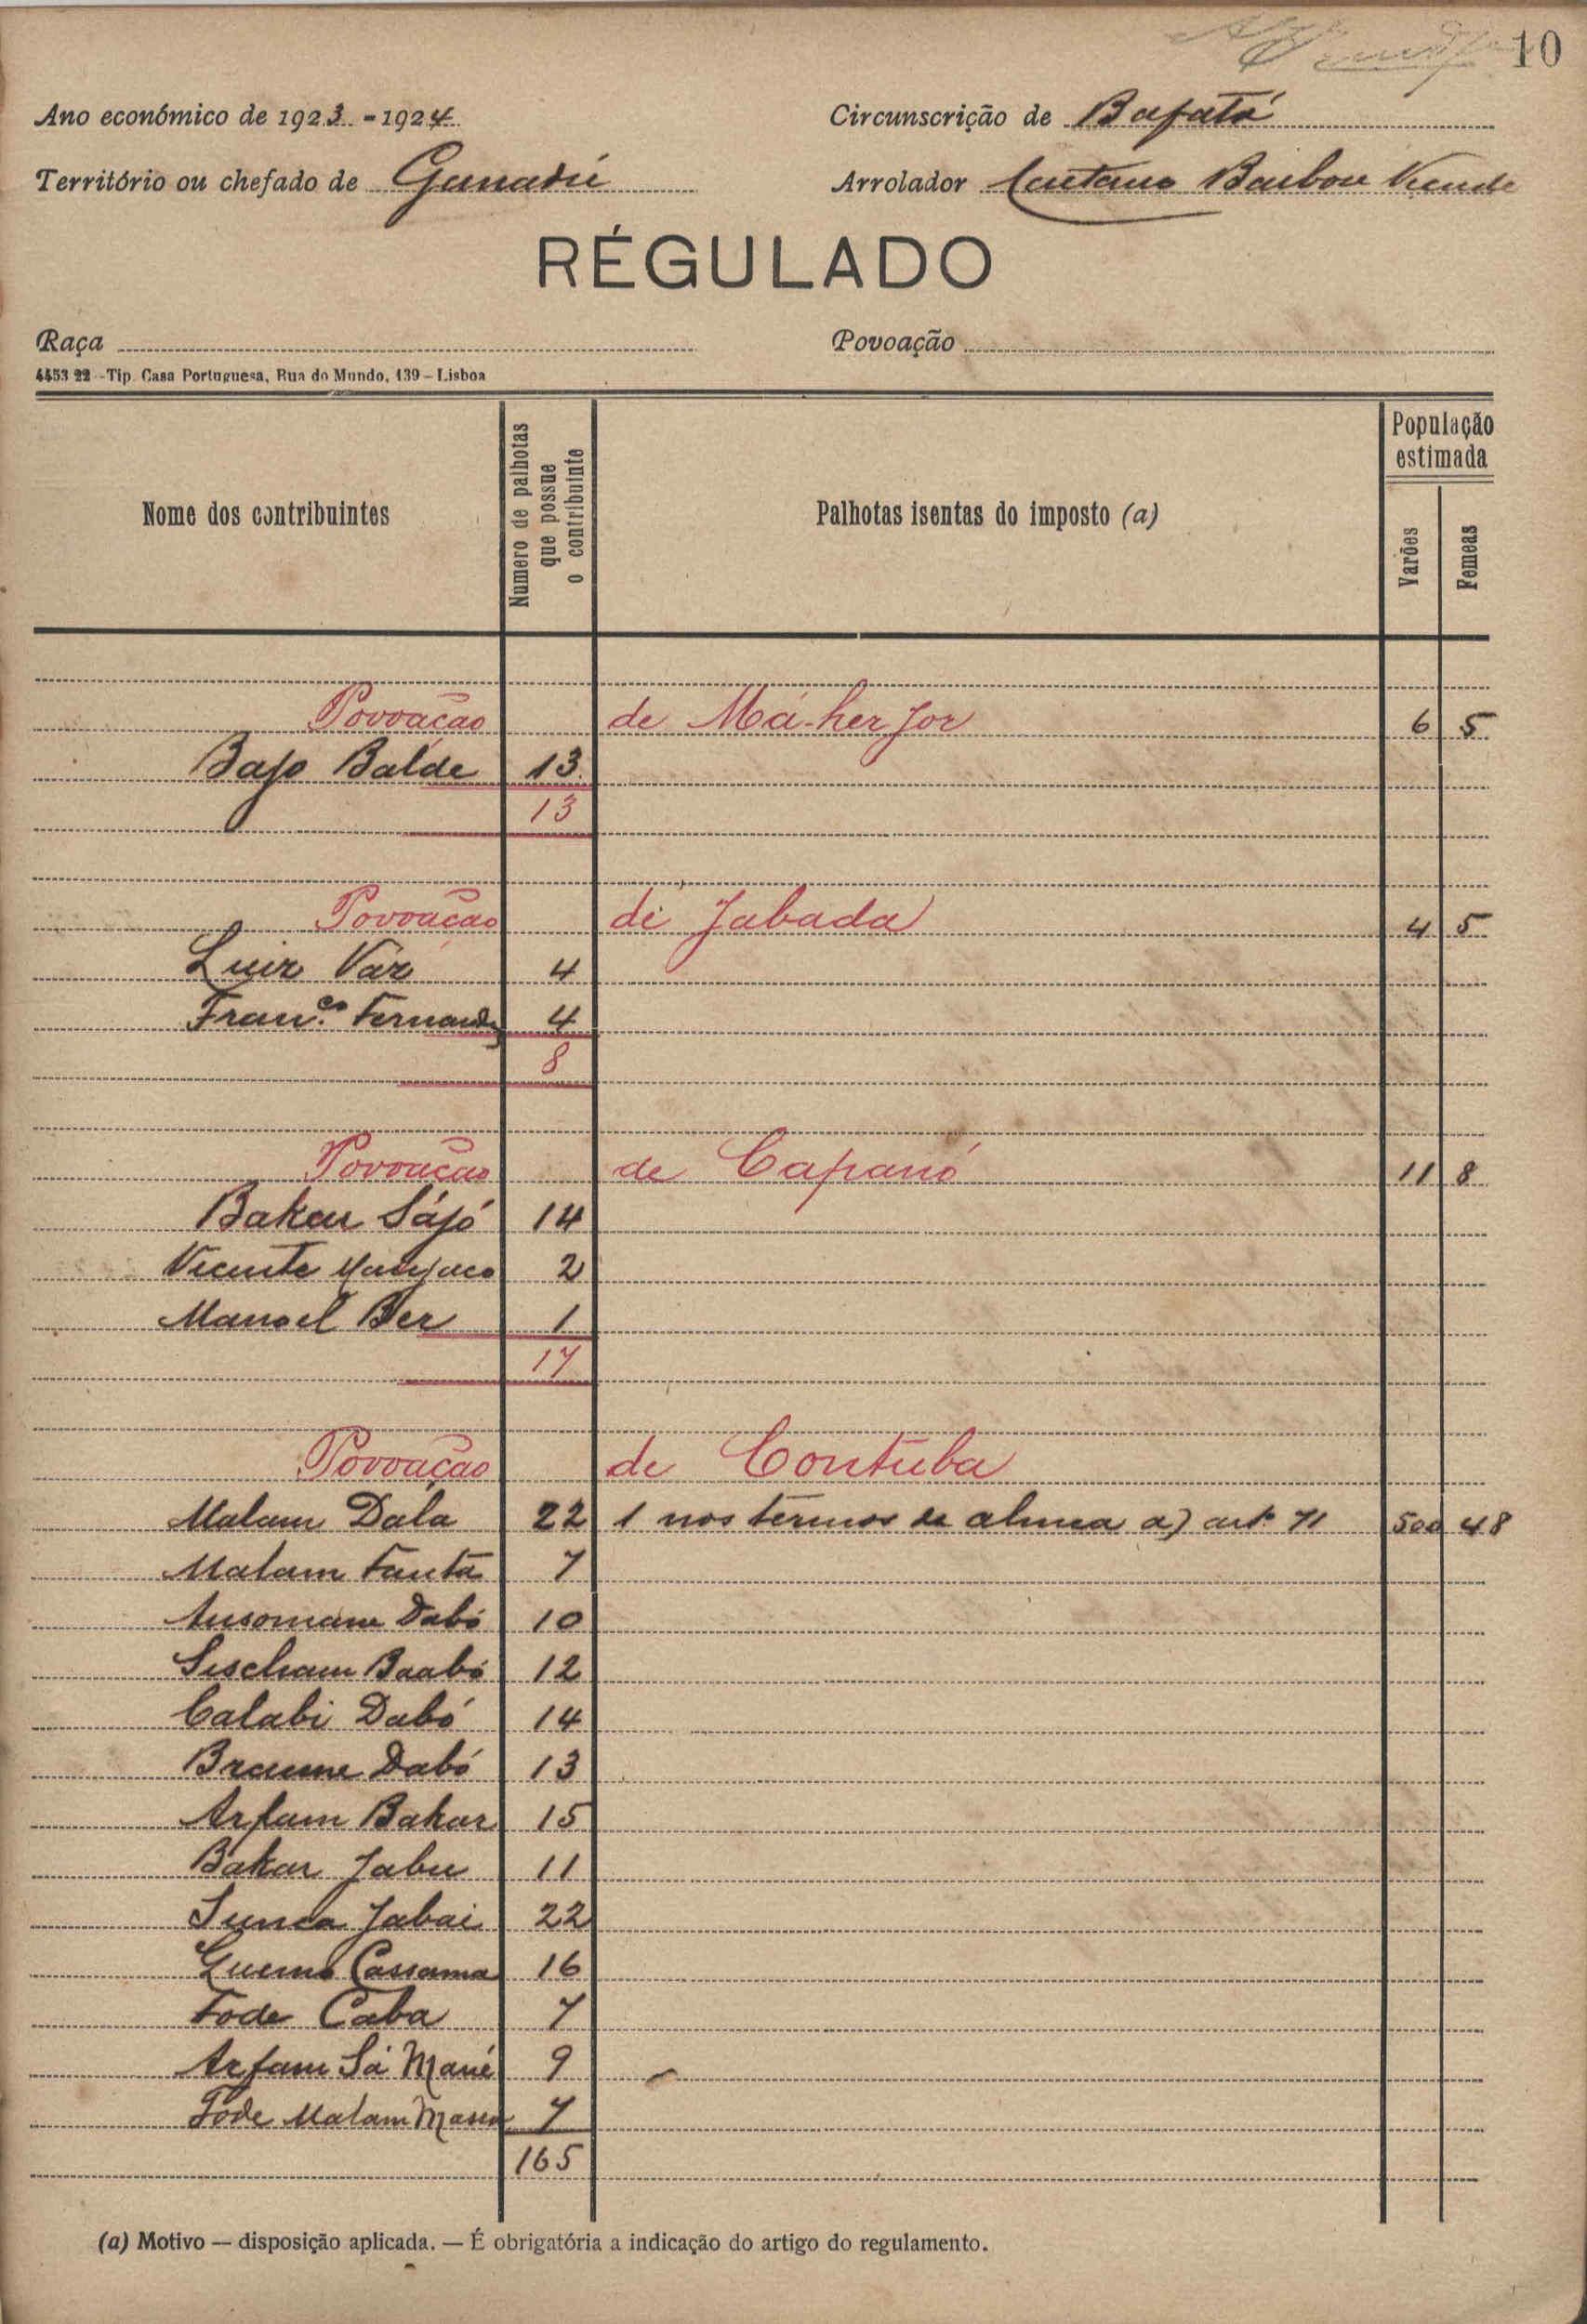 10
Ano económico de 1923 - 1924
Circunscrição de Bafatá
Território ou chefado de Ganadú
Arrolador Caetano Barbosa
RÉGULADO
Raça
Povoação
4453 22 - Tip. Casa Portuguesa, Rua do Mundo, 139 - Lisboa
Nome dos contribuintes
Numero de palhotas que possue o contribuinte
Palhotas isentas do imposto (a)
População estimada
Varões
Femeas
Povoação de Má-her Jor 6 5
Bajo Balde 13
13
Povoação de Jabada 4 5
Luiz Vaz 4
Fran.co Fernandes 4
8
Povoação de Capanó 11 8
Bakar Sájó 14
Vicente Manjaco 2
Manoel Ber 1
17
Povoação de Contuba
Malam Dala 22 1 nos termos da alinea a) art.º 71 500 48
Malam Fanta 7
Ansomane Dabó 10
Baabó 12
Calabi Dabó 14
Braume Dabó 13
Arfam Bakar 15
Bakar Jabu 11
Sunca Jabai 22
Quemo Cassama 16
Fode Caba 7
Arfam Sá Mané 9
Fode Malam 7
165
(a) Motivo — disposição aplicada. — É obrigatória a indicação do artigo do regulamento.